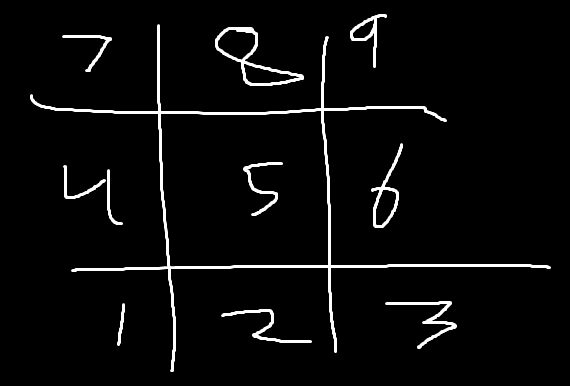 7 8 9
4 5 6
1 2 3